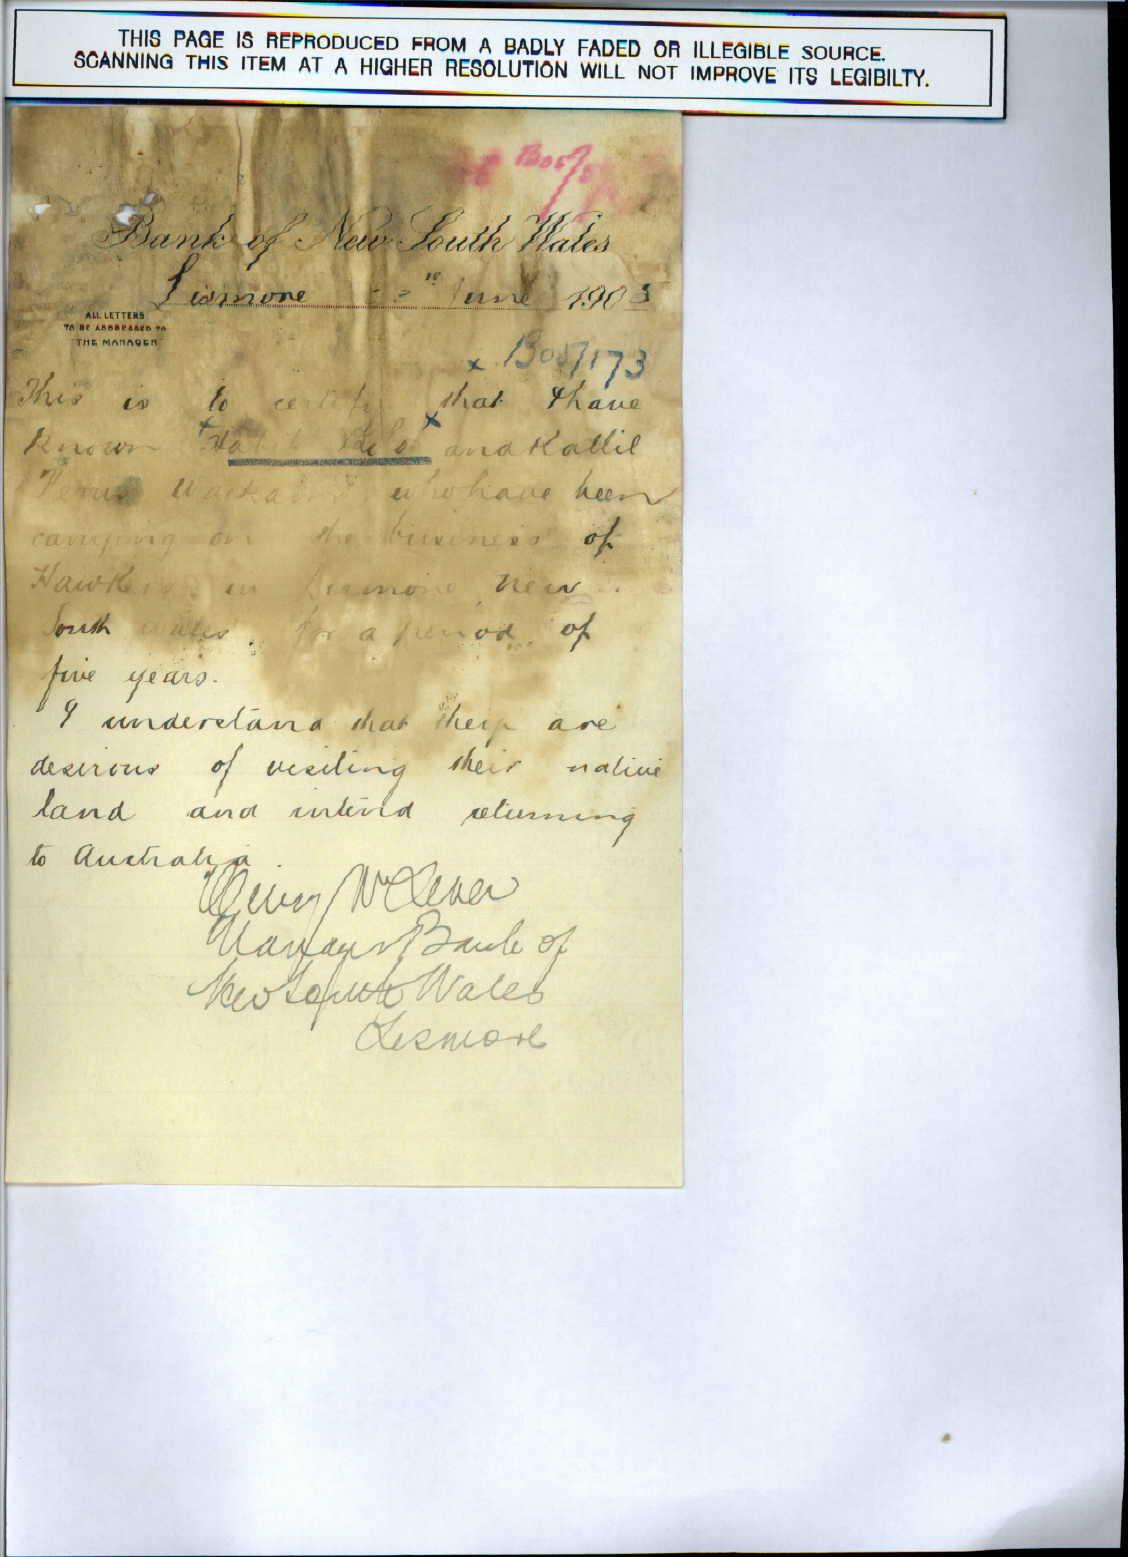 THIS PAGE IS REPRODUCED FROM A BADLY FADED OR ILLEGIBLE SOURCE.
SCANNING THIS ITEM AT A HIGHER RESOLUTION WILL NOT IMPROVE ITS LEGIBILTY.
Bank of New South Wales
Lismore June 1903
ALL LETTERS
TO BE ADDRESSED TO
THE MANAGER
This is to certify that I have
Known and
who have been
carrying on the business of
in Lismore New
South Wales for a period of
five years.
I understand that they are
desirous of visiting their native
land and intend returning
to Australia.
Manager Bank of
New South Wales
Lismore